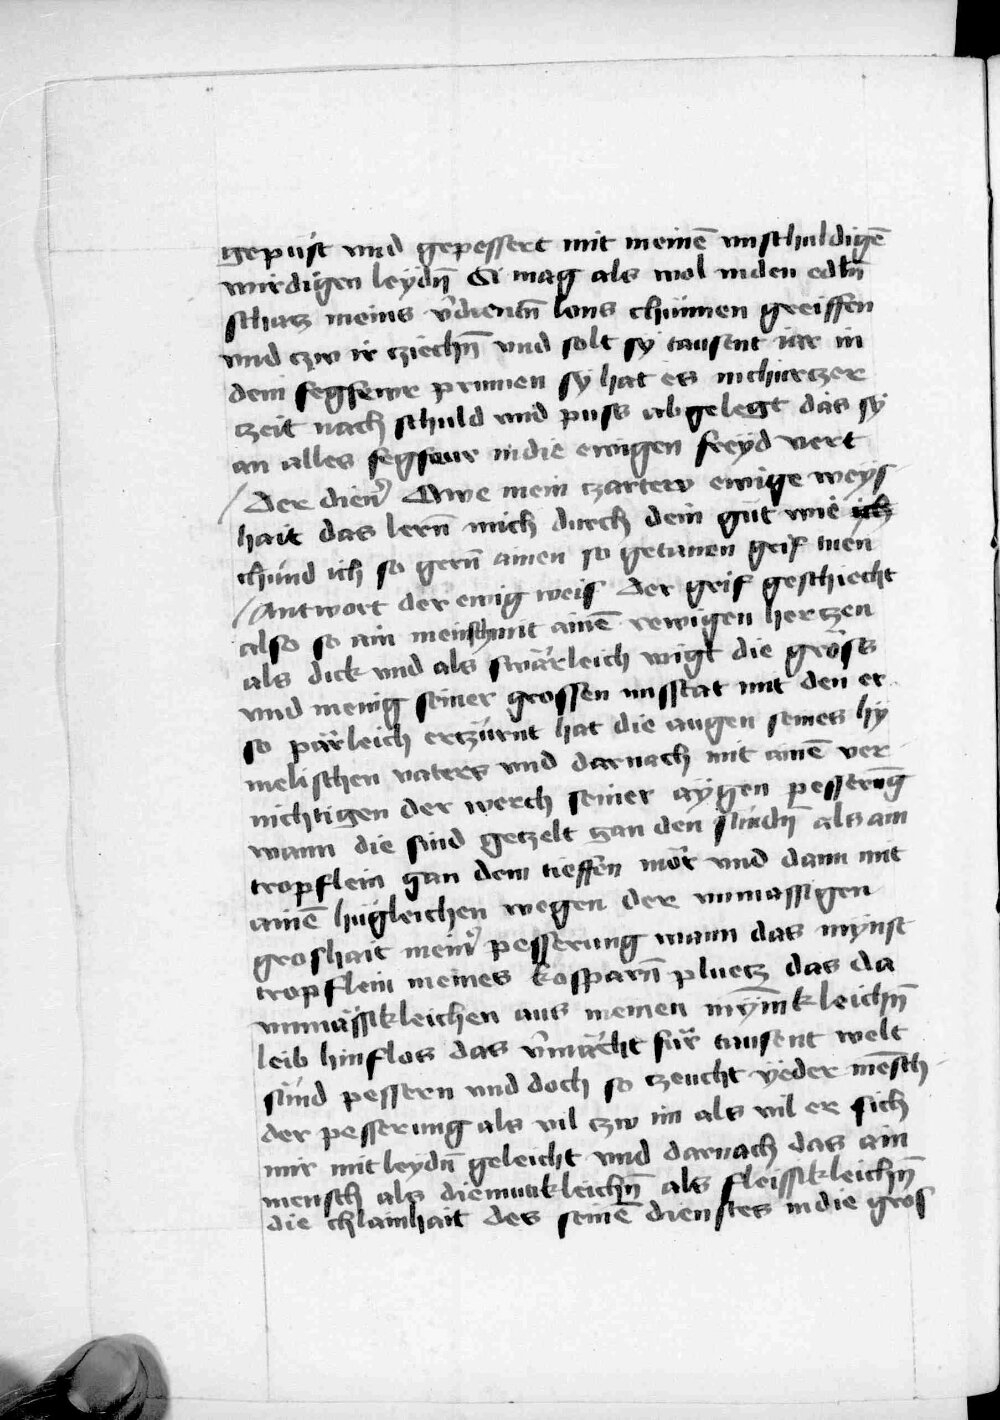 gepüst vnd gepessert mit meinē vnschuldigē
wirdigen leydn̄ Si mag als wol in den edln̄
schatz meins v̄dientn̄ lons chümen greiffen
vnd czw ir cziechn̄ vnd solt sy tausent iar in
dem fegfewr prinnen sy hat es in churczer
czeit nach schuld vnd puss abgelegt das sy
an alles fegfewr in die ewigen freyd vert
/ Der dien̄ Awe mein czartew ewige weys
hait das lern̄ mich durch dein güt wie ich
chünd ich so gern̄ ainen so getanen grif tuen
/ Antwort der ewig weis Der grif geschiecht
also so ain mensch mit ainē rewigen hertzen
als dick vnd als swärleich wigt die gröss
vnd menig seiner grossen misstat mit den er
so pärleich erczürnt hat die augen seines hy
melischen vaters vnd darnach mit ainē ver
nichtigen der werch seiner aygen pesserūg
wann die sind geczelt gan den sündn̄ als ain
tropflein gan dem tieffen mör vnd dann mit
ainē hügleichen wegen der vnmassigen
groshait mein̄ pesserung wann das mynst
tropflein meines kosparn̄ pluetz das da
vnmässikleichen aus meinen mȳnikleichn̄
leib hinflos das v̄möcht für tausent welt
sünd pessern vnd doch so czeucht yeder mēsch
der pesserung als vil czw im als vil er sich
mir mitleydn̄ geleicht vnd darnach das ain
mensch als diemutikleichn̄ als fleissikleichn̄
die chlainhait des seinē dienstes in die gros